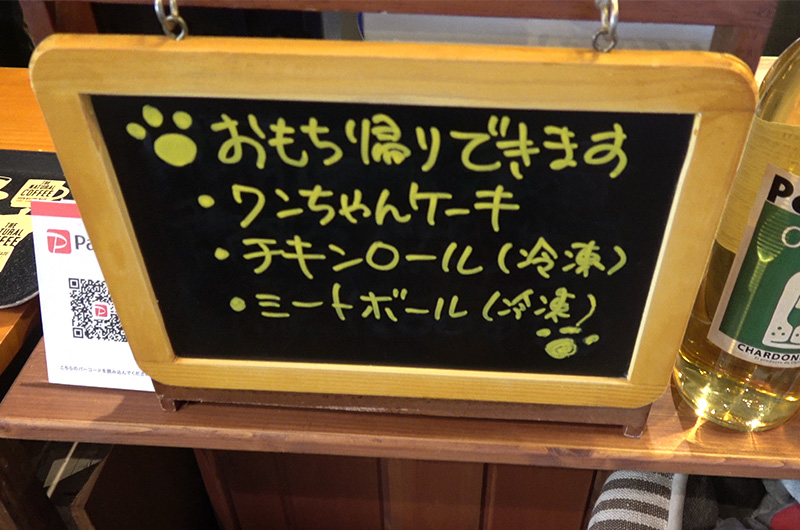 おもち帰りできます
・ワンちゃんケーキ
・チキンロール(冷凍)
・ミートボール(冷凍)
THE
NATURAL
COFFEE
THE
COFFEE
Pa
こちらのバーコードを読み込んでくださ
CHARDON